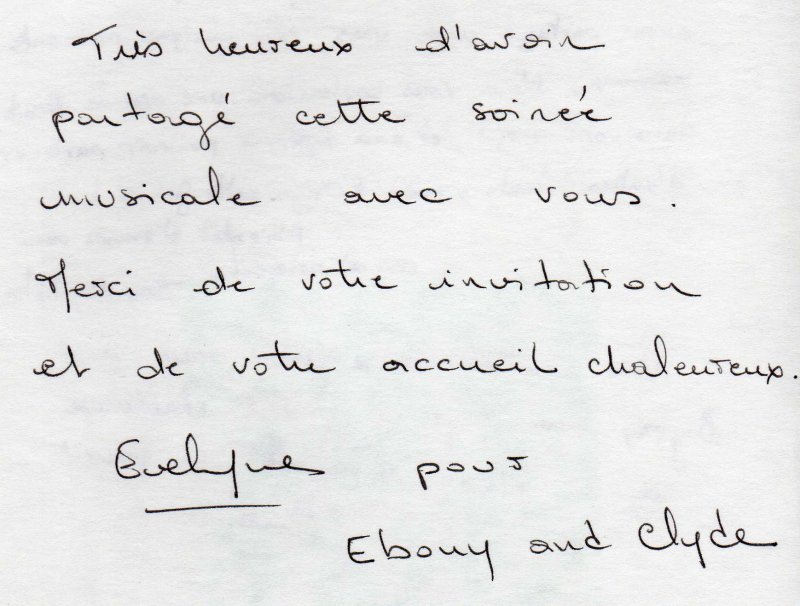 Très heureux d'avoir
partagé cette soirée
musicale avec vous.
Merci de votre invitation
et de votre accueil chaleureux.
Evelyne pour
Ebony and Clyde